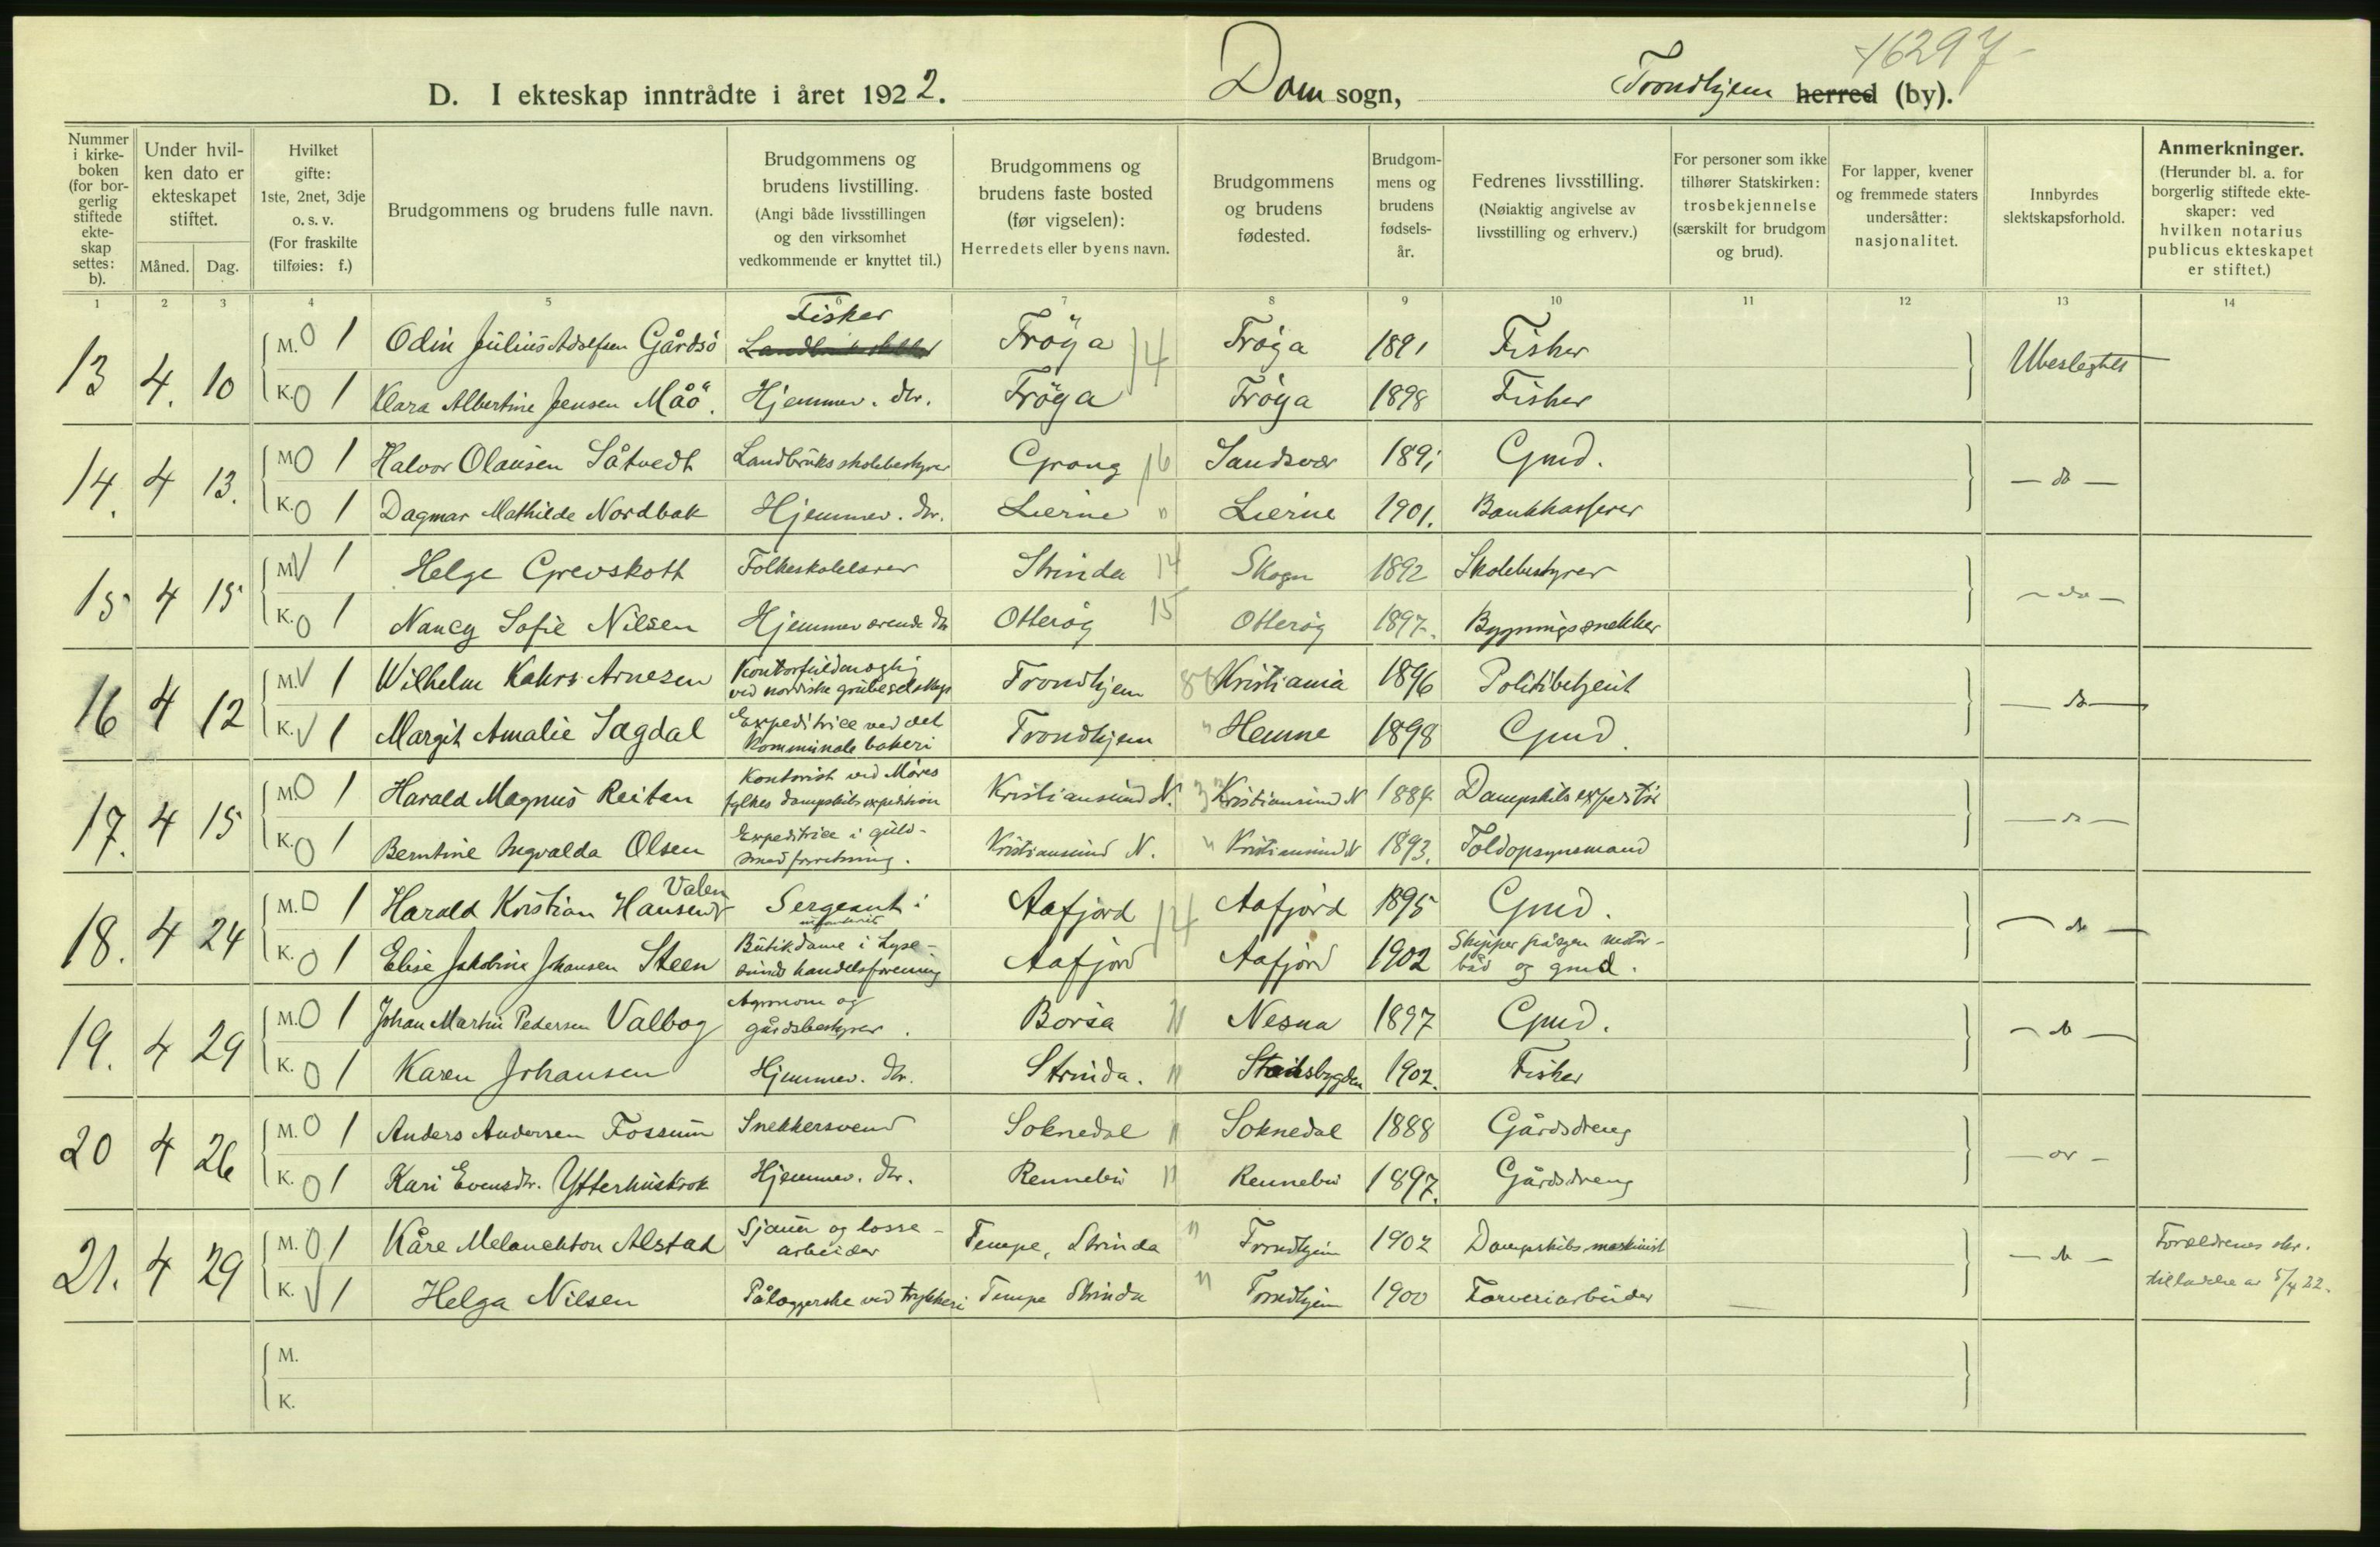 46297
D. I ekteskap inntrådte i året 1922. Dom sogn, Trondhjem herred (by).
Nummer i kirke-boken (for bor-gerlig stiftede ekte-skap settes: b).
Under hvil-ken dato er ekteskapet stiftet.
Måned. Dag.
Hvilket gifte: 1ste, 2net, 3dje o. s. v. (For fraskilte tilføies: f.)
Brudgommens og brudens fulle navn.
Brudgommens og brudens livstilling. (Angi både livsstillingen og den virksomhet vedkommende er knyttet til.)
Brudgommens og brudens faste bosted (før vigselen): Herredets eller byens navn.
Brudgommens og brudens fødested.
Brudgom-mens og brudens fødsels-år.
Fedrenes livsstilling. (Nøiaktig angivelse av livsstilling og erhverv.)
For personer som ikke tilhører Statskirken: trosbekjennelse (særskilt for brudgom og brud).
For lapper, kvener og fremmede staters undersåtter: nasjonalitet.
Innbyrdes slektskapsforhold.
Anmerkninger. (Herunder bl. a. for borgerlig stiftede ekte-skaper: ved hvilken notarius publicus ekteskapet er stiftet.)
1 2 3 4 5 6 7 8 9 10 11 12 13 14
13 4. 10 M. 0 1 Odin Julius Adolfsen Gårdsö Fisker Fröya 14 Fröya 1891 Fisker Ubeslegtet
K. 0 1 Klara Albertine Jensen Måö. Hjemmev. dtr. Fröya Fröya 1898 Fisker
14. 4 13. M. 0 1 Halvor Olausen Såtvedt Landbruksskolebestyrer Grong 16 Sandsvær 1891 Gmd. — do —
K. 0 1 Dagmar Mathilde Nordbak Hjemmev. dtr. Lierne " Lierne 1901. Bankkasserer
15 4 15 M. V 1 Helge Grevskott Folkeskolelærer Strinda 14 Skogn 1892 Skolebestyrer — do —
K. 0 1 Nancy Sofie Nilsen Hjemmeværende dtr Otterøy 15 Otterøy 1897. Bygningssnekker
16 4 12 M. V 1 Wilhelm Kahrs Arnesen Kontorfuldmægtig ved nordiske grubeselskap Trondhjem Kristiania 1896 Politibetjent — do —
K. V 1 Margit Amalie Sagdal Expeditrice ved det kommunale bakeri Trondhjem " Hemne 1898 Gmd.
17. 4 15 M. 0 1 Harald Magnus Reitan Kontorist ved Møres fylkes dampskibsexpedition Kristiansund N. Kristiansund N 1884 Dampskibsexpeditør — do —
K. 0 1 Berntine Ingvalda Olsen Expeditrice i guld-smedforretning. Kristiansund N. " Kristiansund N 1893. Toldopsynsmand
18. 4 24 M. 0 1 Harald Kristian Hansen Valen Sergeant i infanteriet Aafjord 14 Aafjord 1895 Gmd. — do —
K. 0 1 Elise Jakobine Johansen Steen Butikdame i Lyse-sunds handelsforening Aafjord Aafjord 1902 Skipper på egen motor-båd og gmd.
19. 4 29 M. 0 1 Johan Martin Pedersen Valbog Agronom og gårdsbestyrer. Börsa " Nesna 1897 Gmd. — do —
K. 0 1 Karen Johansen Hjemmev. dtr. Strinda. " Stadsbygden 1902. Fisker
20 4 26 M. 0 1 Anders Andersen Fossum Snekkersvend Soknedal " Soknedal 1888 Gårdsdreng — do —
K. 0 1 Kari Evensdtr. Ytterhuskrok Hjemmev. dtr. Rennebu " Rennebu 1897. Gårdsdreng
21. 4 29 M. 0 1 Kåre Melanchton Alstad Sjauer og losse-arbeider Tempe, Strinda " Trondhjem 1902 Dampskibsmaskinist — do — Forældrenes skr. tilladelse av 5/4 22.
K. V 1 Helga Nilsen Pålæggerske ved trykkeri Tempe Strinda " Trondhjem 1900 Farveriarbeider —
M.
K.